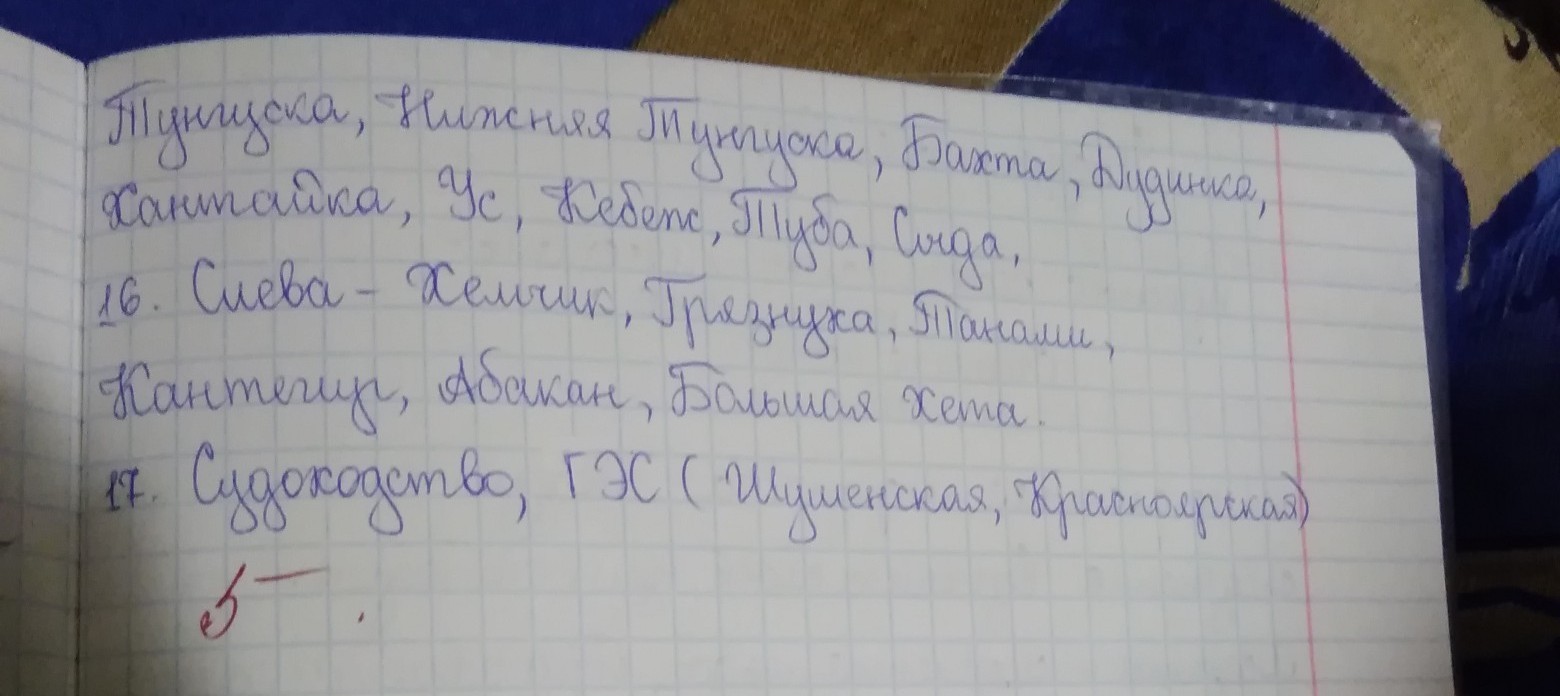 Тунгуска, Нижняя Тунгуска, Бахта, Дудинка,
Хантайка, Ус, Кебеж, Туба, Сыда,
16. Слева - Хемчик, Грязнуха, Танами,
Кантегир, Абакан, Большая Хета.
17. Судоходство, ГЭС (Шушенская, Красноярская)
5